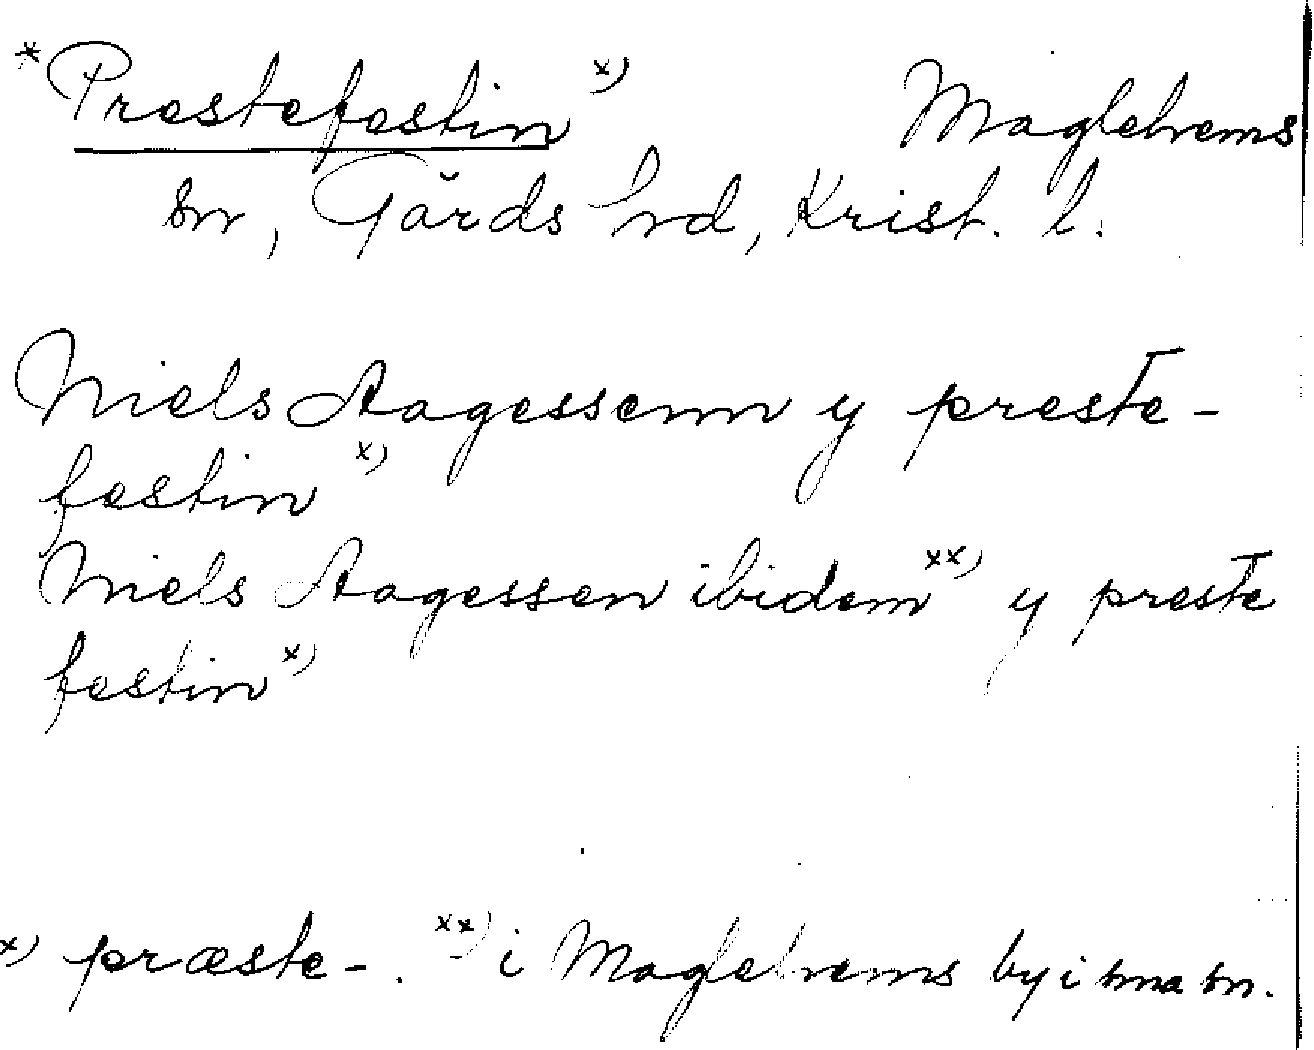 *Prestefestin x) Maglehems
sn, Gärds hd, Krist. l.
Niels Aagessenn y preste-
festin x)
Niels Aagessen ibidem xx) y preste
festin x)
x) præste-. xx) i Maglehems by i sma sn.